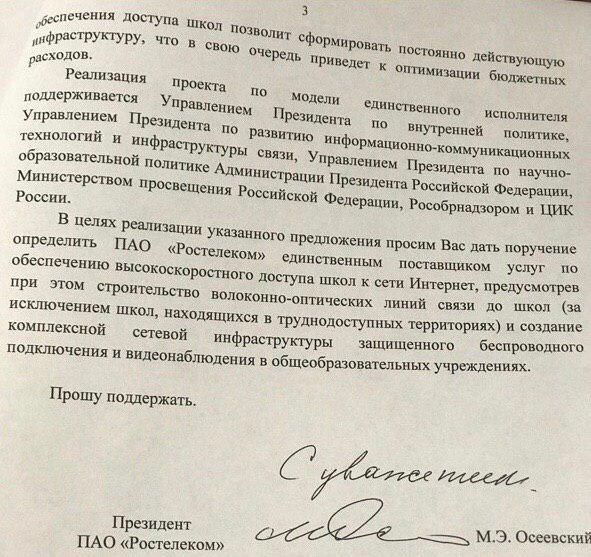 3
обеспечения доступа школ позволит сформировать постоянно действующую
инфраструктуру, что в свою очередь приведет к оптимизации бюджетных
расходов.
Реализация проекта по модели единственного исполнителя
поддерживается Управлением Президента по внутренней политике,
Управлением Президента по развитию информационно-коммуникационных
технологий и инфраструктуры связи, Управлением Президента по научно-
образовательной политике Администрации Президента Российской Федерации,
Министерством просвещения Российской Федерации, Рособрнадзором и ЦИК
России.
В целях реализации указанного предложения просим Вас дать поручение
определить ПАО «Ростелеком» единственным поставщиком услуг по
обеспечению высокоскоростного доступа школ к сети Интернет, предусмотрев
при этом строительство волоконно-оптических линий связи до школ (за
исключением школ, находящихся в труднодоступных территориях) и создание
комплексной сетевой инфраструктуры защищенного беспроводного
подключения и видеонаблюдения в общеобразовательных учреждениях.
Прошу поддержать.
С уважением.
Президент
ПАО «Ростелеком» М.Э. Осеевский